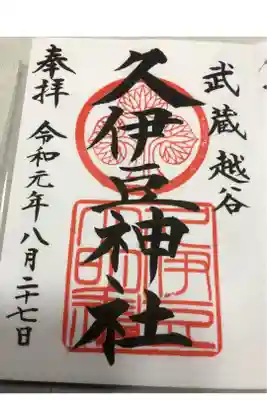 武蔵越谷
久伊豆神社
奉拝 令和元年八月二十七日